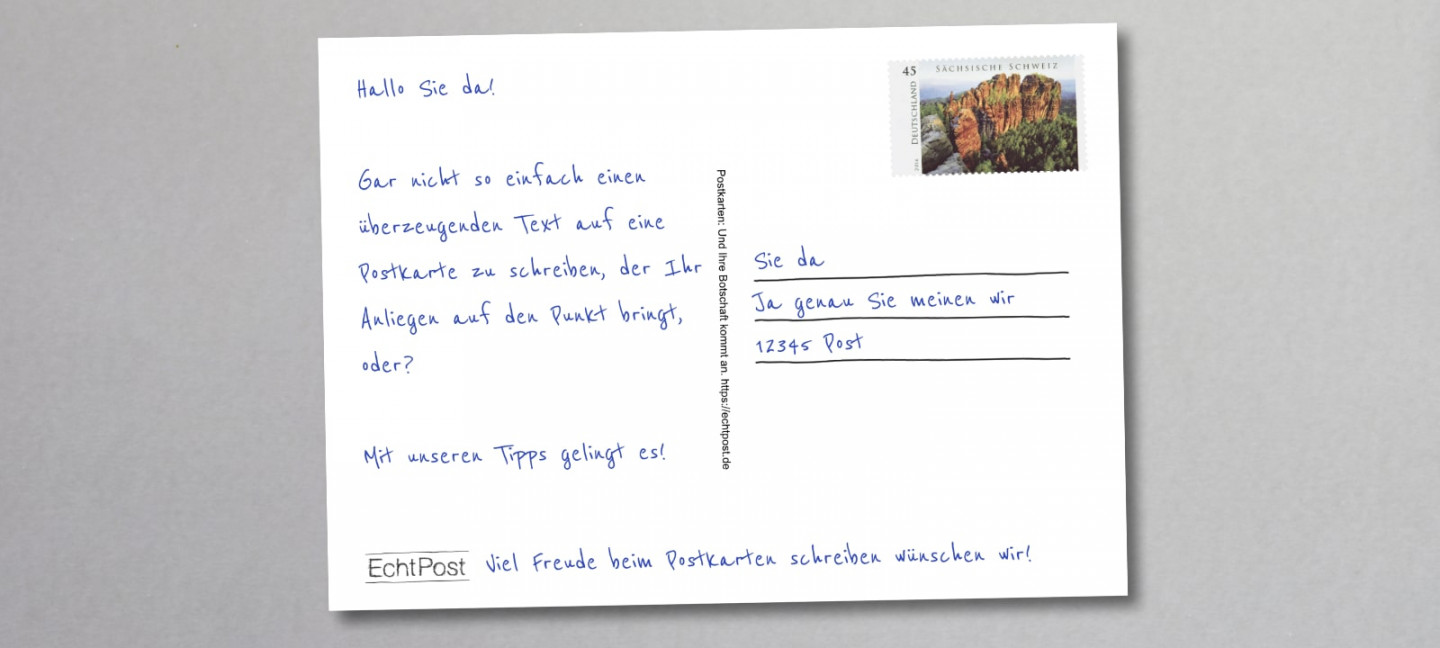 Hallo Sie da!
Gar nicht so einfach einen
überzeugenden Text auf eine
Postkarte zu schreiben, der Ihr
Anliegen auf den Punkt bringt,
oder?
Mit unseren Tipps gelingt es!
EchtPost Viel Freude beim Postkarten schreiben wünschen wir!
Postkarten: Und Ihre Botschaft kommt an. https://echtpost.de
45 SÄCHSISCHE SCHWEIZ
DEUTSCHLAND
Sie da
Ja genau Sie meinen wir
12345 Post